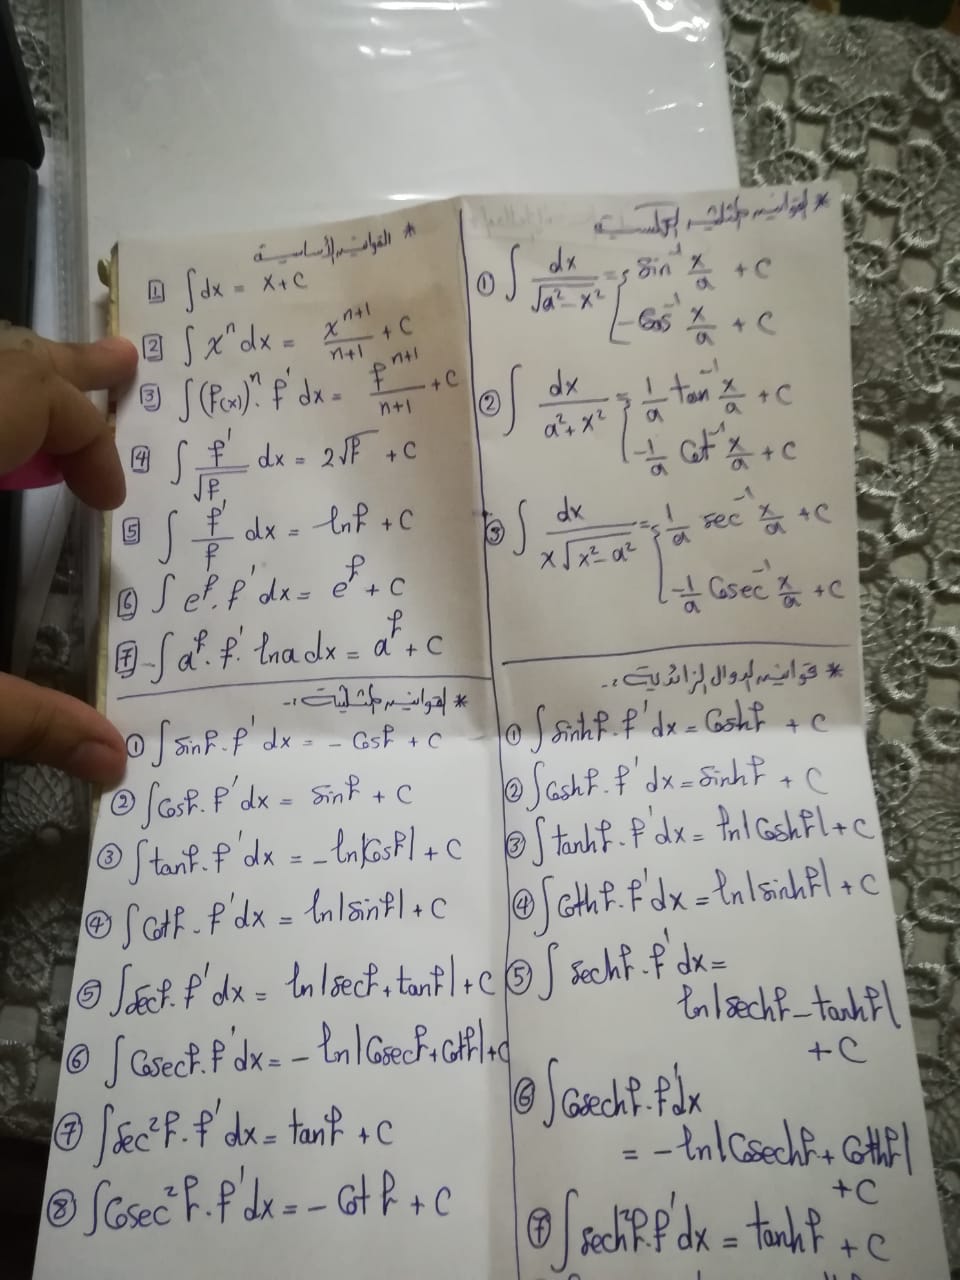 * القوانين الأساسية
[1] ∫dx = x+c
[2] ∫ xⁿ dx = xⁿ⁺¹/n+1 + C
[3] ∫(f(x))ⁿ. f' dx = fⁿ⁺¹/n+1 + C
[4] ∫ f'/√f dx = 2√f + C
[5] ∫ f'/f dx = lnf + C
[6] ∫ e^f. f' dx = e^f + C
[7] ∫ a^f. f'. lna dx = a^f + C
* قوانين المثلثات :-
① ∫ sinf. f' dx = - Cosf + C
② ∫Cosf. f'dx = sinf + C
③ ∫tanf. f'dx = -ln|Cosf| + C
④ ∫Cotf - f'dx = ln|sinf| + C
⑤ ∫secf. f'dx = ln|secf + tanf| + C
⑥ ∫Cosecf. f'dx = - ln|Cosecf + Cotf| + C
⑦ ∫sec²f. f'dx = tanf + C
⑧ ∫Cosec²f. f'dx = - Cot f + C
* قوانين المثلثية العكسية
① ∫ dx/√a²-x² = { sin⁻¹ x/a + C
-Cos⁻¹ x/a + C
② ∫ dx/a²+x² = { 1/a tan⁻¹ x/a + C
-1/a Cot⁻¹ x/a + C
③ ∫ dx/x√x²-a² = { 1/a sec⁻¹ x/a + C
-1/a Cosec⁻¹ x/a + C
* قوانين الدوال الزائدية :-
① ∫ sinhf. f'dx = Coshf + C
② ∫Coshf. f'dx = sinhf + C
③ ∫tanhf. f'dx = ln|Coshf| + C
④ ∫Cothf. f'dx = ln|sinhf| + C
⑤ ∫ sechf. f'dx =
ln|sechf - tanhf|
+ C
⑥ ∫Cosechf. f'dx
= - ln|Cosechf + Cothf|
+ C
⑦ ∫sech²f. f'dx = tanhf + C